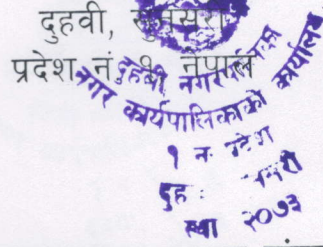 दुहवी, सुनसरी
प्रदेश नं १ नेपाल
दुहवी नगरपालिका
नगर कार्यपालिकाको कार्यालय
१ न प्रदेश
दुह
स्था २०७३